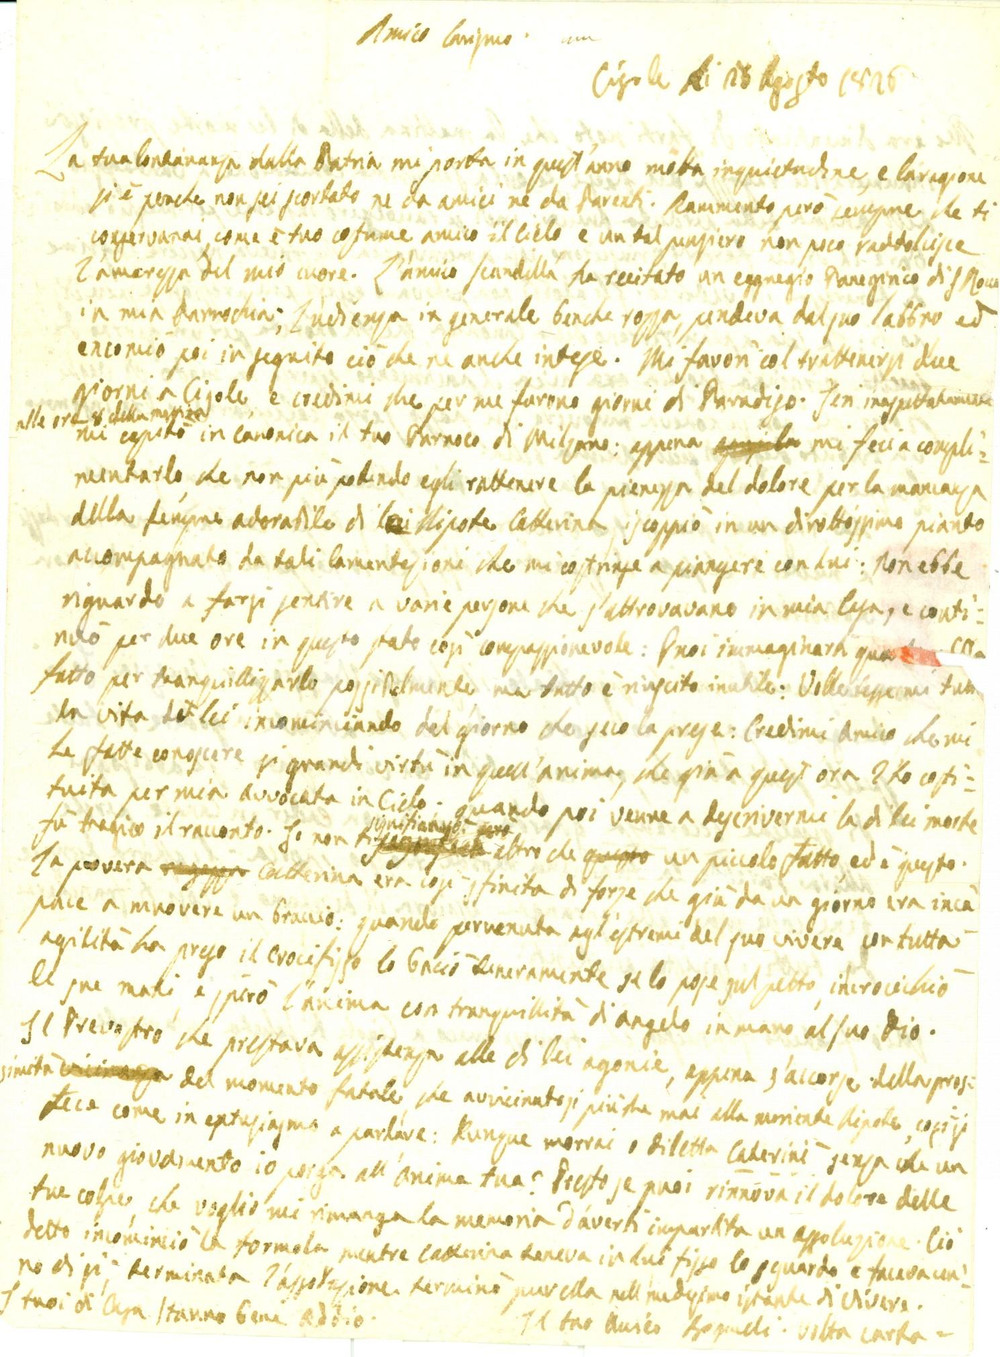 Amico Carissimo.
Cigole li 28 Agosto 1826
La tua lontananza dalla Patria mi porta in quest'anno molta inquietudine, e la ragione
si è perchè non sei scortato nè da amici nè da Parenti. Rammento però sempre che ti
conservarai, come è tuo costume amico il Cielo e un tal pensiero non poco raddolcisce
l'amarezza del mio cuore. L'amico Scandella ha recitato un eggregio Panegirico di S. Rocco
in mia Parrochia; l'udienza in generale benche rozza, pendeva dal suo labbro ed
encomiò poi in seguito ciò che nè anche intese. Mi favorì col trattenersi due
giorni a Cigole, e credimi che per me furono giorni di Paradiso. Jeri inaspettatamente
alle ore 8 della mattina
mi capitò in canonica il tuo Parroco di Milzano: appena mi feci a compli=
mentarlo, che non più potendo egli rattenere la pienezza del dolore per la mancanza
della sempre adorabile di lui Nipote Catterina scoppiò in un dirottissimo pianto
accompagnato da tali lamentazioni che mi costrinse a piangere con lui: non ebbe
riguardo a farsi sentire a varie persone che s'attrovavano in mia Casa, e conti=
nuò per due ore in questo stato così compassionevole: Puoi immaginarti
fatto per tranquillizzarlo possibilmente ma tutto è riuscito inutile: Volle
la vita di lei incominciando del giorno che seco la prese: Credimi Amico che mi
ha fatte conoscere sì grandi virtù in quell'anima, che già a quest'ora l'ho costi=
tuita per mia Avvocata in Cielo. quando poi venne a descrivermi la di lei morte
fù tragico il racconto. Io non ti
significarò però
altro che un piccolo fatto, ed è questo.
La povera ragazza Catterina era così sfinita di forze che già da un giorno era inca
pace a muovere un braccio: quando pervenuta agl'estremi del suo vivere con tutta
agilità ha preso il Crocifisso lo baciò teneramente se lo pose sul petto, incrocicchiò
le sue mani e spirò l'anima con tranquillità d'angelo in mano al suo Dio.
Il Prevostro, che prestava assistenza alle di lei agonie, appena s'accorse della pros=
simità vicinanza del momento fatale che avvicinatosi più che mai alla moriente Nipote, così si
fece come in entusiasmo a parlare: Dunque morrai o diletta Catterina senza che un
nuovo giovamento io porga all'anima tua? Presto se puoi rinnova il dolore delle
tue colpe, che voglio mi rimanga la memoria d'averti impartita un assoluzione. Ciò
detto incominciò la formola mentre Catterina teneva in lui fisso lo sguardo e faceva cen=
no di sì; terminata l'assoluzione terminò pur ella nell'medesimo istante di vivere.
I tuoi di Casa stanno bene Addio.
Il tuo Amico volta carta =